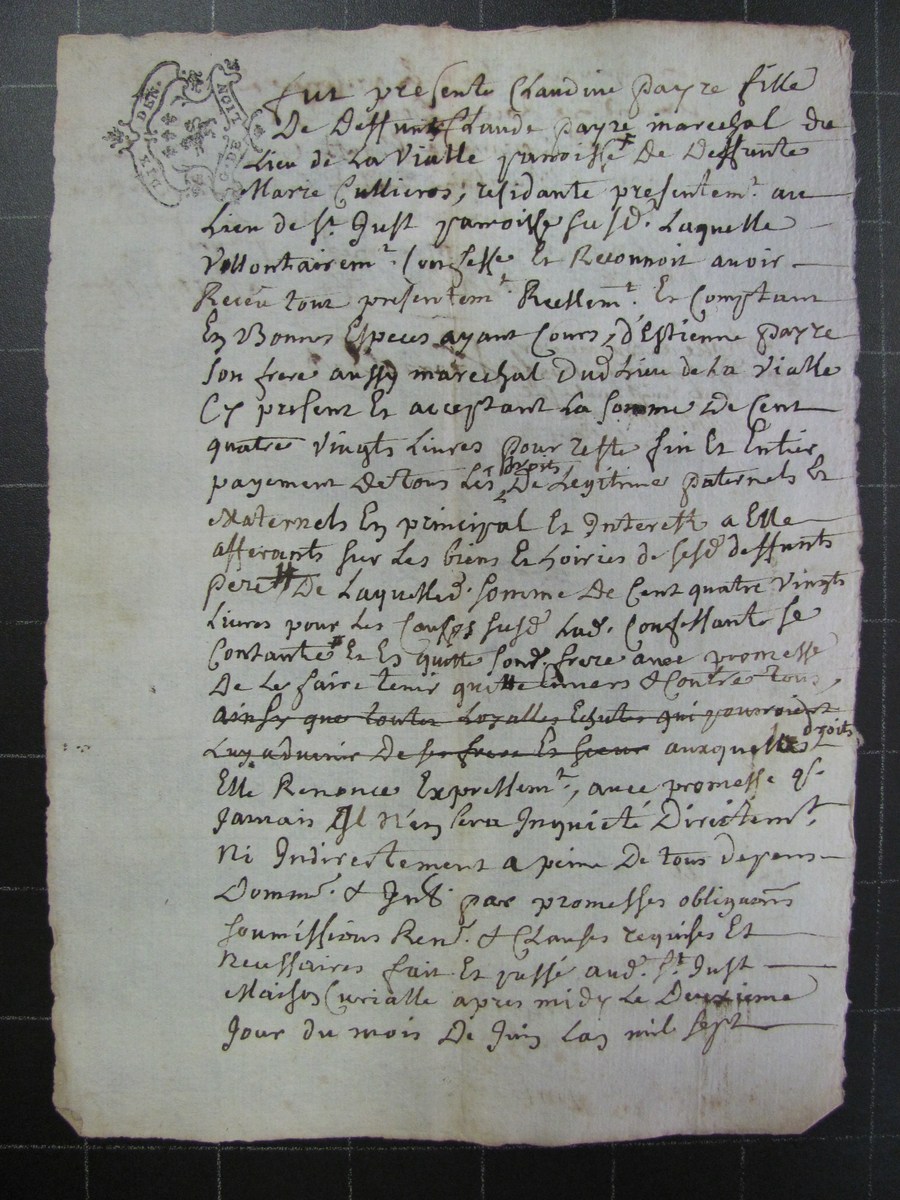 DIX DEN. NOIT
Fut presente Claudine payre fille
De Deffunt Claude payre marechal du
Lieu de La Vialle parroisse De Deffunte
Marie Cullieros, residante presentem.t au
Lieu de S.t Just parroisse susd. Laquelle
Vollontairem.t Confesse Et Reconnoit avoir
Receu tout presentem.t Reellem.t Et Comptant
En Bonnes Especes ayant Cours, d'Estienne payre
son frere aussy marechal Dud Lieu de La Vialle
Cy present Et acceptant La somme De Cent
quatre Vingts Livres pour reste fin Et Entier
payement De tous Les droits De Legitime paternels Et
Maternels En principal Et Interets a Elle
afferants sur Les biens Et hoiries de sesd deffunts
pere De Laquelle d. somme De Cent quatre Vingts
Livres pour Les Causes susd Lad. Confessante se
Contante Et En quitte sond. frere avec promesse
De Le faire tenir quitte Envers & Contre tous,
ainsy que toutes Loyalles Echutes qui pourroient
Luy advenir De ses frere Et sœur auxquelles droits
Elle Renonce Expressem.t, avec promesse q.
Jamais Il N'en sera Inquieté Directem.t
Ni Indirectement a peine De tous depens
Domm. & Int. par promesses obliga͠ons
soumissions Ren. & Clauses requises Et
Necessaires fait Et passé aud. S.t Just
Maison Curialle apres midy Le Deuxieme
Jour du mois De Juin Lan mil sept